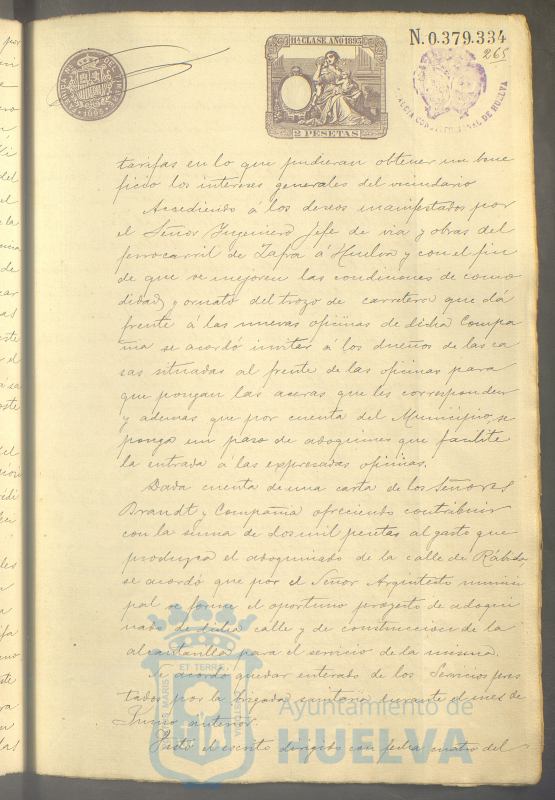 N. 0.379.334
11ª CLASE AÑO 1895
265
2 PESETAS
tarifas en lo que pudieran obtener un bene
ficio los intereses generales del vecindario
Accediendo á los deseos manifestados por
el Señor Ingeniero Jefe de via y obras del
ferrocarril de Zafra á Huelva y con el fin
de que se mejoren las condiciones de como
didad y ornato del trozo de carretera que dá
frente á las nuevas oficinas de dicha Compa
ñia se acordó invitar á los dueños de las ca
sas situadas al frente de las oficinas para
que pongan las aceras que les corresponden
y ademas que por cuenta del Municipio, se
ponga un paso de adoquines que facilite
la entrada á las expresadas oficinas.
Dada cuenta de una carta de los Señores
Brandt y Compañia ofreciendo contribuir
con la suma de dos mil pesetas al gasto que
produzca el adoquinado de la calle de Rábida,
se acordó que por el Señor Arquitecto munici
pal se forme el oportuno proyecto de adoqui
nado de dicha calle y de construccion de la
alcantarilla para el servicio de la misma.
Se acordó quedar enterado de los servicios pres
tados por la brigada sanitaria durante el mes de
Junio anterior.
Visto el escrito dirigido con fecha cuatro del
ET TERRE
Ayuntamiento de
HUELVA